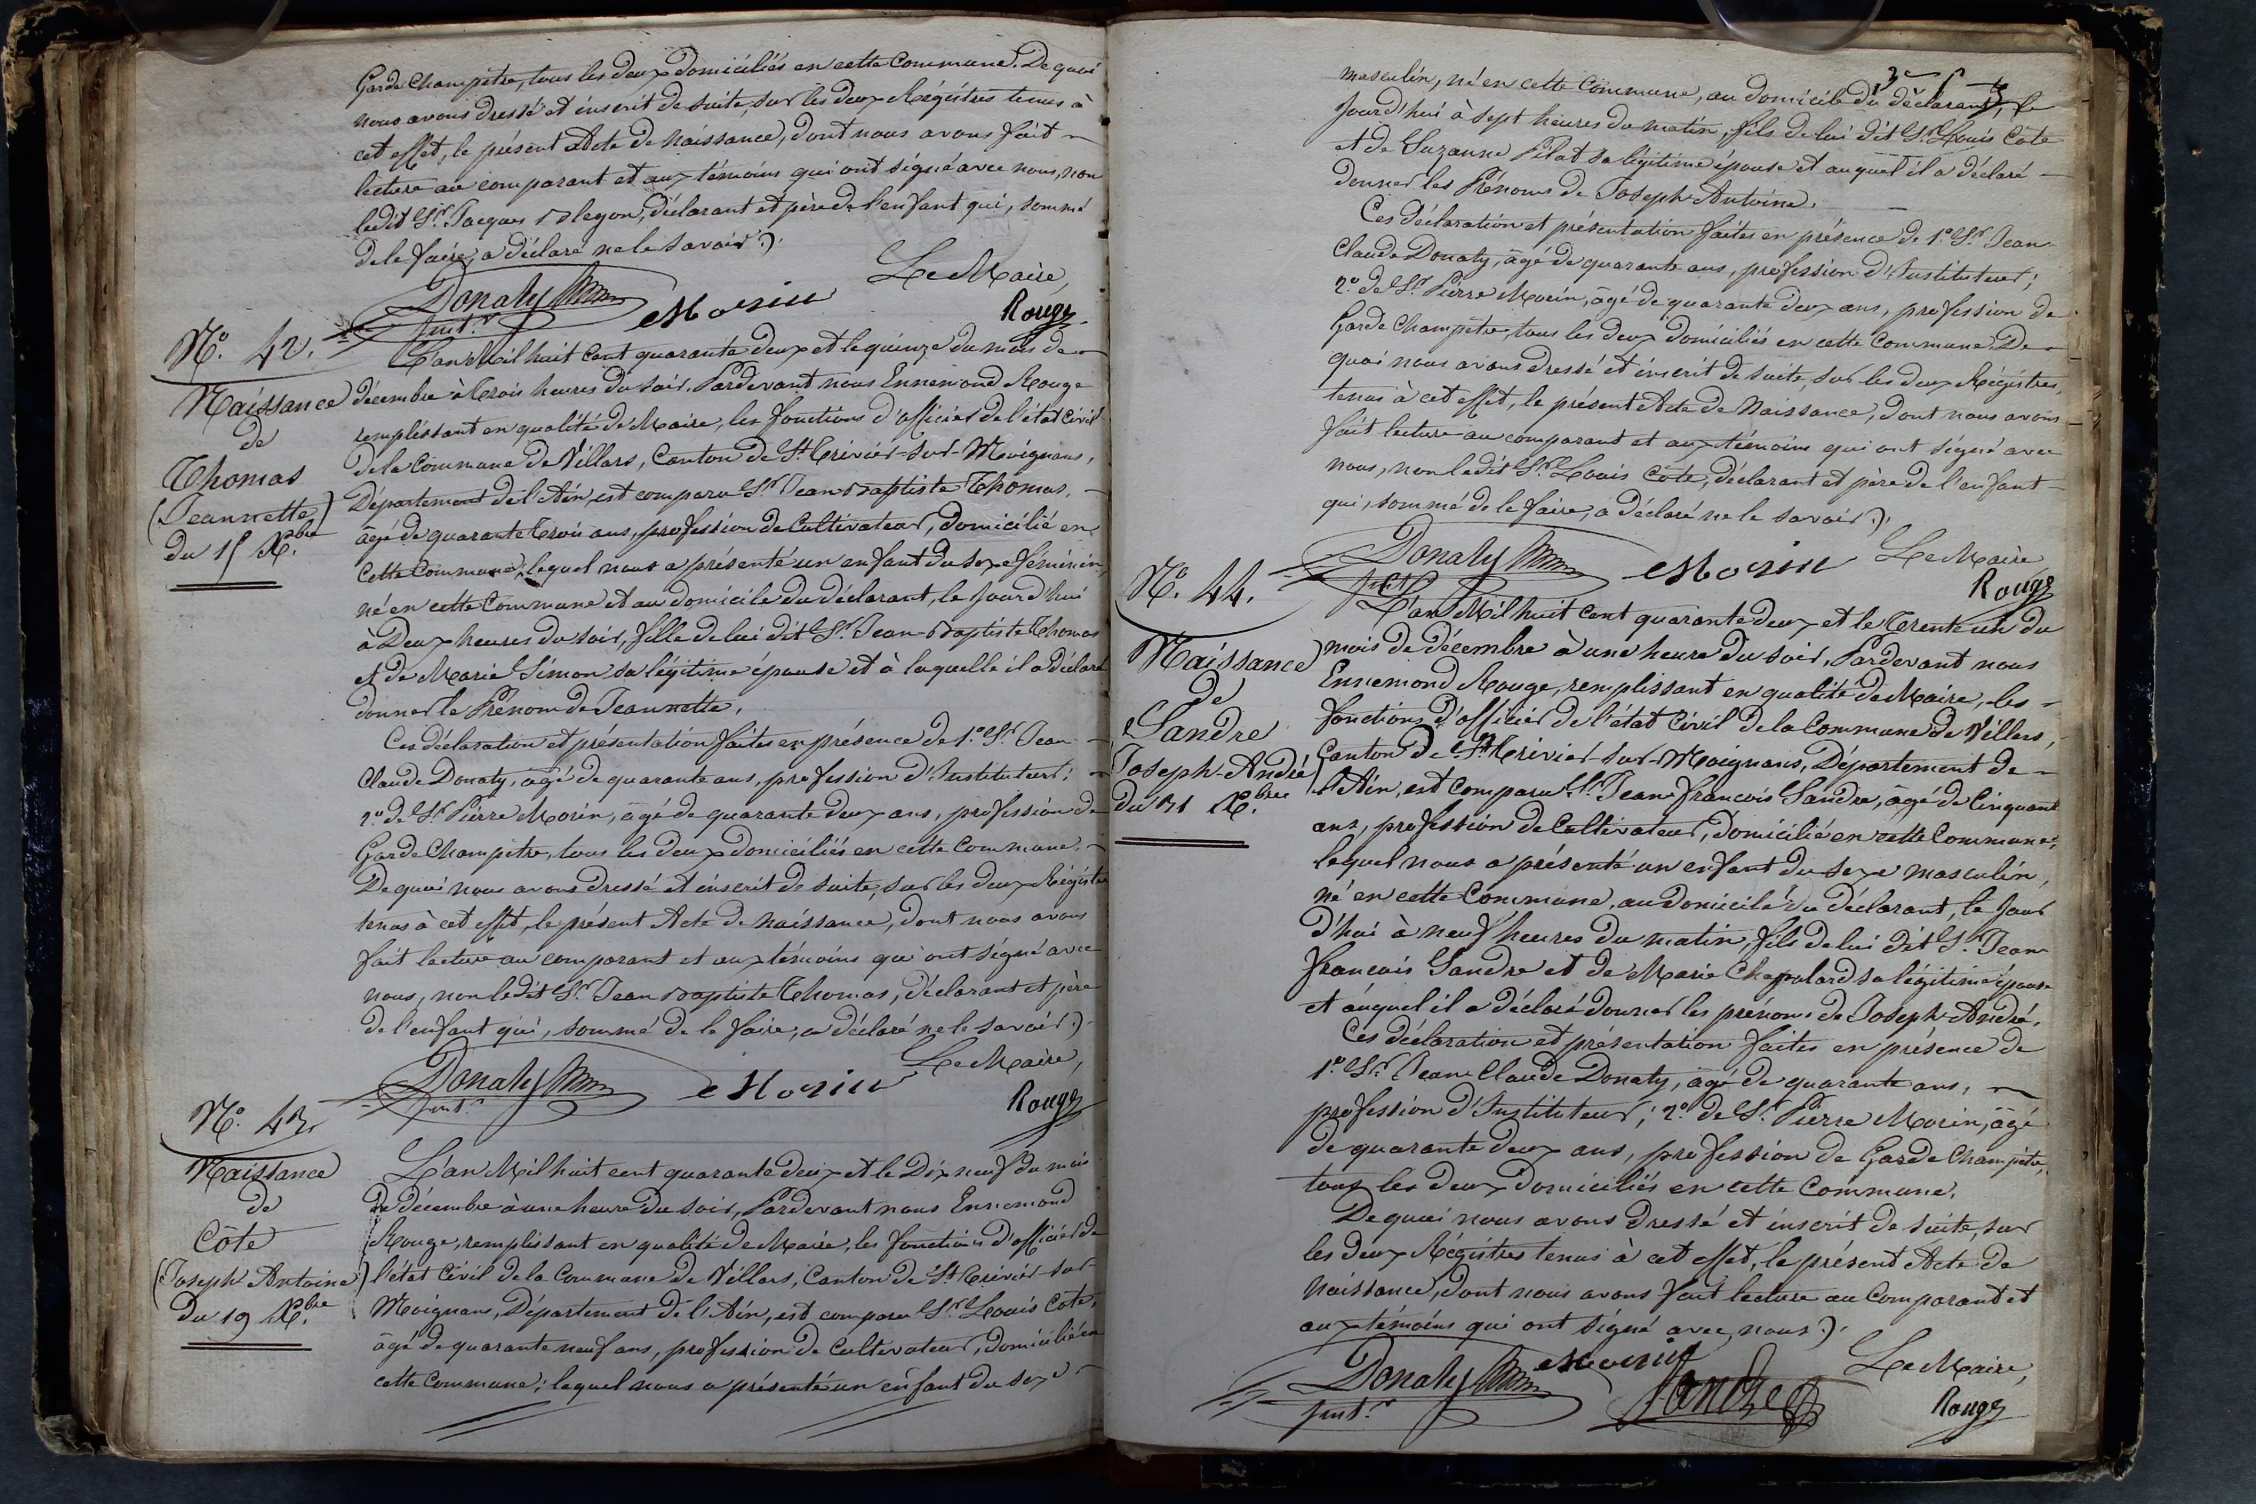 Garde Champêtre, tous les deux domiciliés en cette Commune. De quoi
nous avons dressé et inscrit de suite, sur les deux Régistres tenus à
cet effet, le présent Acte de Naissance, dont nous avons fait
lecture au comparant et aux témoins qui ont signé avec nous, non
ledit Sr. Jacques, déclarant et père de l'enfant qui, sommé
de le faire, a déclaré ne le savoir.
Le Maire,
Donaty Morin Rouge
Inst.r
No. 42.
Naissance
de
Thomas
(Jeannette)
du 15 Xbre
L'an Mil huit cent quarante deux et le quinze du mois de
décembre à trois heures du soir. Pardevant nous Ennemond Rouge
remplissant en qualité de Maire, les fonctions d'officier de l'état Civil
de la Commune de Villars, Canton de St. Trivier-sur-Moignans,
Département de l'Ain, est comparu Sr. Jean Baptiste Thomas,
âgé de quarante trois ans, profession de Cultivateur, domicilié en
cette Commune, lequel nous a présenté un enfant du sexe féminin,
né en cette Commune et au domicile du déclarant, le jourd'hui
à Deux heures du soir, fille de lui dit Sr. Jean-Baptiste Thomas
et de Marie Simon sa légitime épouse et à laquelle il a déclaré
donner le Prénom de Jeannette.
Ces déclaration et présentation faites en présence de 1.o Sr. Jean
Claude Donaty, âgé de quarante ans, profession d'Instituteur;
2.o de Sr. Pierre Morin, âgé de quarante deux ans, profession de
Garde Champêtre, tous les deux domiciliés en cette Commune.
De quoi nous avons dressé et inscrit de suite, sur les deux Régistres
tenus à cet effet, le présent Acte de naissance, dont nous avons
fait lecture au comparant et aux témoins qui ont signé avec
nous, non ledit Sr. Jean Baptiste Thomas, déclarant et père
de l'enfant qui, sommé de le faire, a déclaré ne le savoir.
Le Maire,
Donaty Morin Rouge
Inst.r
No. 43.
Naissance
de
Côte
(Joseph Antoine)
du 19 Xbre
L'an Mil huit cent quarante deux et le Dix neuf du mois
de décembre à une heure du soir, Pardevant nous Ennemond
Rouge, remplissant en qualité de Maire, les fonctions d'officier de
l'état Civil de la Commune de Villars, Canton de St. Trivier-sur-
Moignans, Département de l'Ain, est comparu Sr. Louis Côte,
âgé de quarante neuf ans, profession de Cultivateur, domicilié en
cette Commune; lequel nous a présenté un enfant du sexe
masculin, né en cette Commune, au domicile du déclarant, le
jourd'hui à sept heures du matin, fils de lui dit Sr. Louis Côte
et de Suzanne Pilat sa légitime épouse et auquel il a déclaré
donner les Prénoms de Joseph-Antoine.
Ces déclaration et présentation faites en présence de 1.o Sr. Jean-
Claude Donaty, âgé de quarante ans, profession d'Instituteur;
2.o de Sr. Pierre Morin, âgé de quarante deux ans, profession de
Garde Champêtre, tous les deux domiciliés en cette Commune. De
quoi nous avons dressé et inscrit de suite, sur les deux Régistres,
tenus à cet effet, le présent Acte de Naissance, dont nous avons
fait lecture au comparant et aux témoins qui ont signé avec
nous, non ledit Sr. Louis Côte, déclarant et père de l'enfant
qui, sommé de le faire, a déclaré ne le savoir.
Le Maire
Donaty Morin Rouge
Inst.r
No. 44.
Naissance
de
Sandre
Joseph-André
du 31 Xbre
L'an Mil huit cent quarante deux et le Trente un du
mois de décembre à une heure du soir, Pardevant nous
Ennemond Rouge, remplissant en qualité de Maire, les
fonctions d'officier de l'état Civil de la Commune de Villars,
Canton de St. Trivier-sur-Moignans, Département de
l'Ain, est comparu Sr. Jean-françois Sandre, âgé de Cinquante
ans, profession de Cultivateur, domicilié en cette Commune,
lequel nous a présenté un enfant du sexe masculin,
né en cette Commune, au domicile du déclarant, le jour
d'hui à neuf heures du matin, fils de lui dit Sr. Jean
françois Sandre et de Marie Chapolard sa légitime épouse
et auquel il a déclaré donner les prénoms de Joseph-André.
Ces déclaration et présentation faites en présence de
1.o Sr. Jean Claude Donaty, âgé de quarante ans,
profession d'Instituteur; 2.o de Sr. Pierre Morin, âgé
de quarante deux ans, profession de Garde Champêtre,
tous les deux domiciliés en cette Commune.
De quoi nous avons dressé et inscrit de suite, sur
les deux Régistres tenus à cet effet, le présent Acte de
Naissance, dont nous avons fait lecture au Comparant et
aux témoins qui ont signé avec nous.
Le Maire,
Donaty Morin Sandre Rouge
Inst.r